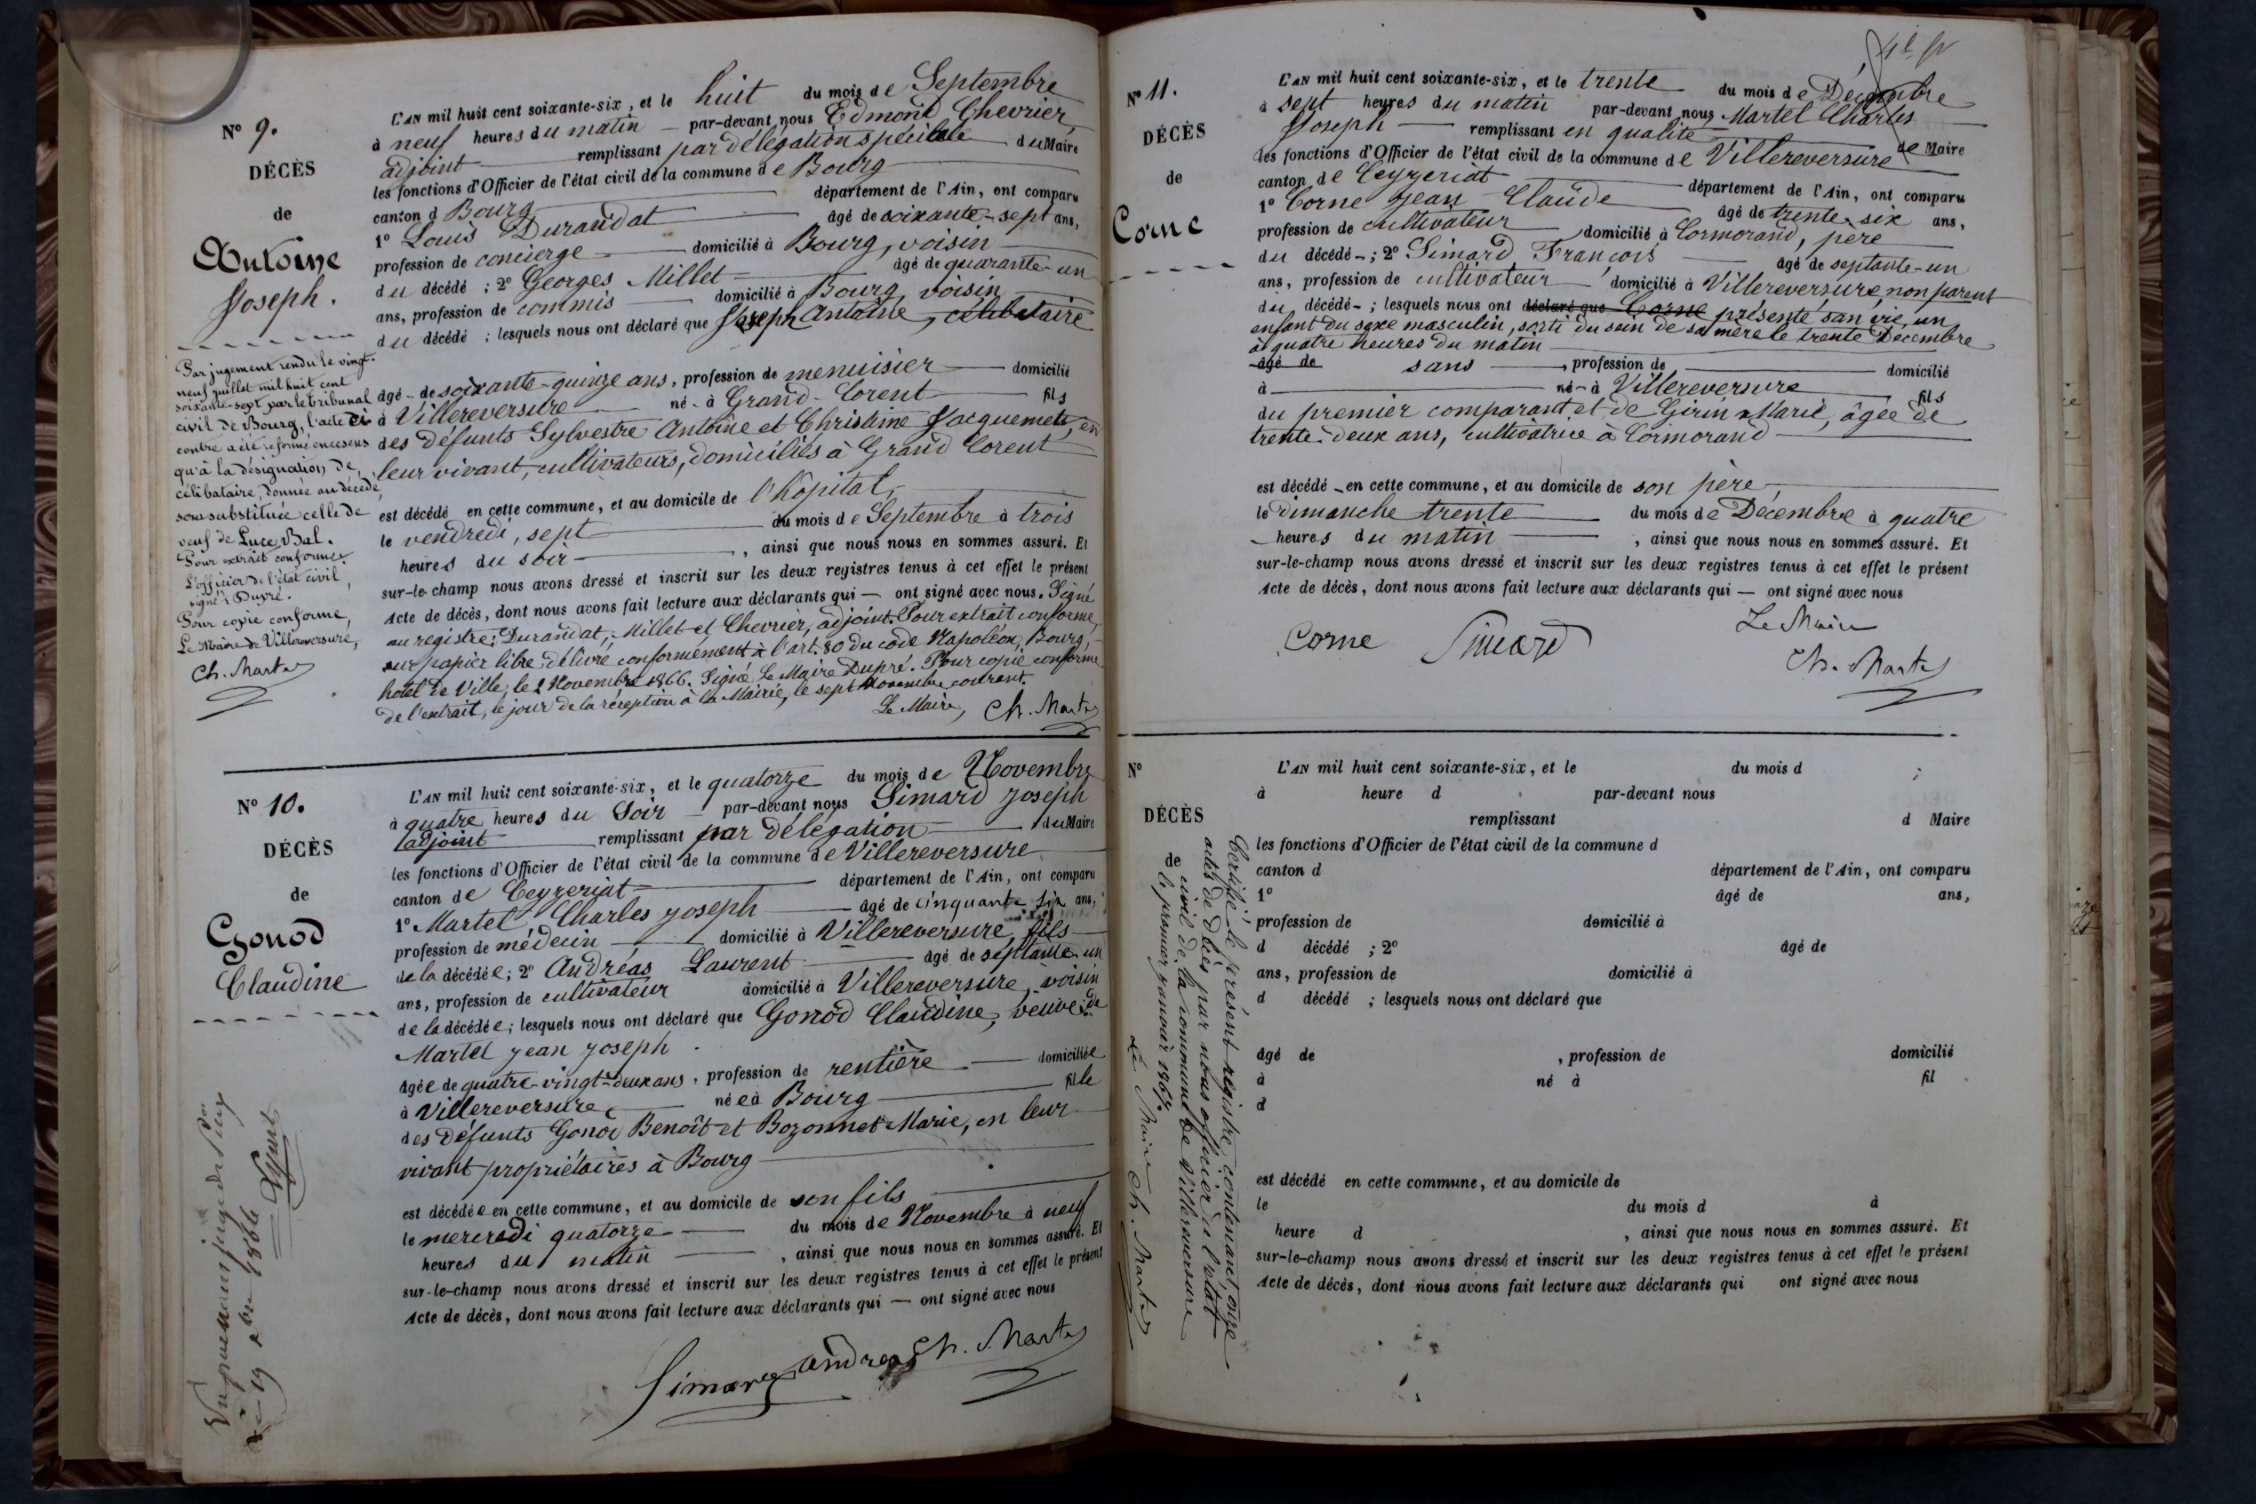 N° 9.
DÉCÈS
de
Antoine
Joseph.
Par jugement rendu le vingt-
neuf juillet mil huit cent
soixante-sept par le tribunal
civil de Bourg, l'acte ci
contre a été réformé en ce sens
qu'à la désignation de
célibataire, donnée au décédé,
sera substituée celle de
veuf de Luce Bal.
Pour extrait conforme.
L'officier de l'état civil,
signé: Dupré.
Pour copie conforme,
Le Maire de Villereversure,
Ch. Martel
L'AN mil huit cent soixante-six, et le huit du mois de Septembre
à neuf heures du matin par-devant nous Edmond Chevrier,
adjoint remplissant par délégation spéciale du Maire
les fonctions d'Officier de l'état civil de la commune de Bourg
canton d Bourg département de l'Ain, ont comparu
1° Louis Durandat âgé de soixante-sept ans,
profession de concierge domicilié à Bourg, voisin
du décédé ; 2° Georges Millet âgé de quarante-un
ans, profession de commis domicilié à Bourg, voisin
du décédé ; lesquels nous ont déclaré que Joseph Antoine, célibataire
âgé de soixante-quinze ans, profession de menuisier domicilié
à Villereversure né à Grand-Corent fils
des défunts Sylvestre Antoine et Christine Jacquemet, en
leur vivant, cultivateurs, domiciliés à Grand Corent
est décédé en cette commune, et au domicile de l'hôpital,
le vendredi, sept du mois de Septembre à trois
heures du soir , ainsi que nous nous en sommes assuré. Et
sur-le-champ nous avons dressé et inscrit sur les deux registres tenus à cet effet le présent
Acte de décès, dont nous avons fait lecture aux déclarants qui — ont signé avec nous. Signé
au registre: Durandat, Millet et Chevrier, adjoint. Pour extrait conforme,
sur papier libre, délivré conformément à l'art. 80 du code Napoléon, Bourg,
hôtel de Ville, le 2 Novembre 1866. Signé Le Maire Dupré. Pour copie conforme
de l'extrait, le jour de la réception à la Mairie, le sept Novembre courant.
Le Maire, Ch. Martel
N° 10.
DÉCÈS
de
Gonod
Claudine
Le 19 1866
L'AN mil huit cent soixante-six, et le quatorze du mois de Novembre
à quatre heures du Soir par-devant nous Simard Joseph
adjoint remplissant par délégation du Maire
les fonctions d'Officier de l'état civil de la commune de Villereversure
canton de Ceyzeriat département de l'Ain, ont comparu
1° Martel Charles Joseph âgé de cinquante six ans,
profession de médecin domicilié à Villereversure fils
de la décédée; 2° Andréas Laurent âgé de septante-un
ans, profession de cultivateur domicilié à Villereversure, voisin
de la décédée; lesquels nous ont déclaré que Gonod Claudine, veuve de
Martel Jean Joseph
âgée de quatre-vingt-deux ans, profession de rentière domiciliée
à Villereversure née à Bourg fille
des défunts Gonod Benoît et Bozonnet Marie, en leur
vivant propriétaires à Bourg
est décédée en cette commune, et au domicile de son fils
le mercredi quatorze du mois de Novembre à neuf
heures du matin , ainsi que nous nous en sommes assuré. Et
sur-le-champ nous avons dressé et inscrit sur les deux registres tenus à cet effet le présent
Acte de décès, dont nous avons fait lecture aux déclarants qui — ont signé avec nous
Simard Andréas Ch. Martel
N° 11.
DÉCÈS
de
Corne
L'AN mil huit cent soixante-six, et le trente du mois de Décembre
à sept heures du matin par-devant nous Martel Charles
Joseph remplissant en qualité de Maire
les fonctions d'Officier de l'état civil de la commune de Villereversure
canton de Ceyzeriat département de l'Ain, ont comparu
1° Corne Jean Claude âgé de trente-six ans,
profession de cultivateur domicilié à Cormorand, père
du décédé ; 2° Simard François âgé de septante-un
ans, profession de cultivateur domicilié à Villereversure non parent
du décédé ; lesquels nous ont déclaré que Corne présenté sans vie, un
enfant du sexe masculin, sorti du sein de sa mère le trente Décembre
à quatre heures du matin
âgé de sans , profession de domicilié
à né à Villereversure fils
du premier comparant et de Girin Marie, âgée de
trente-deux ans, cultivatrice à Cormorand
est décédé en cette commune, et au domicile de son père,
le dimanche trente du mois de Décembre à quatre
heures du matin , ainsi que nous nous en sommes assuré. Et
sur-le-champ nous avons dressé et inscrit sur les deux registres tenus à cet effet le présent
Acte de décès, dont nous avons fait lecture aux déclarants qui — ont signé avec nous
Le Maire
Corne Simard Ch. Martel
N°
DÉCÈS
de
Certifié le présent registre contenant onze
actes de décès par nous officier de l'état
civil de la commune de Villereversure
le premier janvier 1867.
Le Maire Ch. Martel
L'AN mil huit cent soixante-six, et le du mois d
à heure d par-devant nous
remplissant d Maire
les fonctions d'Officier de l'état civil de la commune d
canton d département de l'Ain, ont comparu
1° âgé de ans,
profession de domicilié à
d décédé ; 2° âgé de
ans, profession de domicilié à
d décédé ; lesquels nous ont déclaré que
âgé de , profession de domicilié
à né à fil
d
est décédé en cette commune, et au domicile de
le du mois d à
heure d , ainsi que nous nous en sommes assuré. Et
sur-le-champ nous avons dressé et inscrit sur les deux registres tenus à cet effet le présent
Acte de décès, dont nous avons fait lecture aux déclarants qui ont signé avec nous